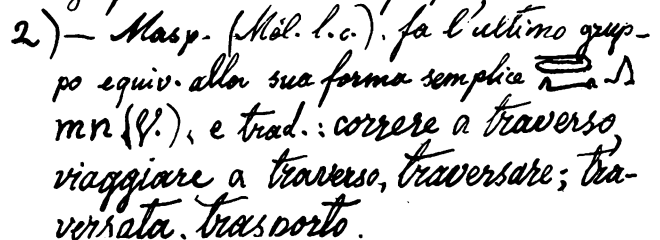 2)— Masp. (Mél. l.c.). fa l'ultimo grup-
po equiv. alla sua forma semplice
mn (V.), e trad.: correre a traverso,
viaggiare a traverso, traversare; tra-
versata, trasporto.